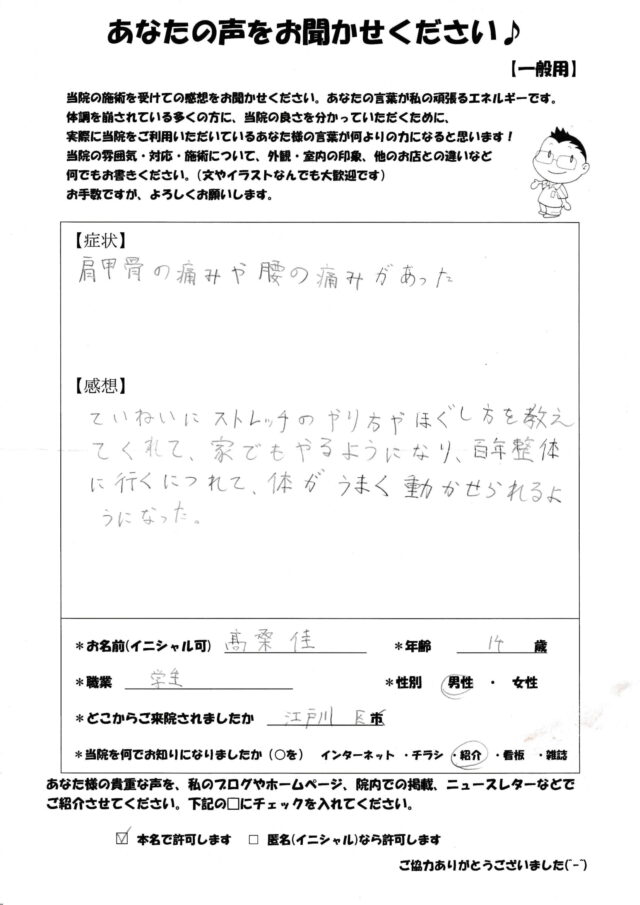 あなたの声をお聞かせください♪
【一般用】
当院の施術を受けての感想をお聞かせください。あなたの言葉が私の頑張るエネルギーです。
体調を崩されている多くの方に、当院の良さを分かっていただくために、
実際に当院をご利用いただいているあなた様の言葉が何よりの力になると思います！
当院の雰囲気・対応・施術について、外観・室内の印象、他のお店との違いなど
何でもお書きください。（文やイラストなんでも大歓迎です）
お手数ですが、よろしくお願いします。
【症状】
肩甲骨の痛みや腰の痛みがあった
【感想】
ていねいにストレッチのやり方やほぐし方を教え
てくれて、家でもやるようになり、百年整体
に行くにつれて、体がうまく動かせられるよ
うになった。
＊お名前(イニシャル可) 髙桑 佳 ＊年齢 14 歳
＊職業 学生 ＊性別 男性 ・ 女性
＊どこからご来院されましたか 江戸川 区市
＊当院を何でお知りになりましたか（○を） インターネット ・チラシ ・紹介 ・看板 ・雑誌
あなた様の貴重な声を、私のブログやホームページ、院内での掲載、ニュースレターなどで
ご紹介させてください。下記の□にチェックを入れてください。
☑ 本名で許可します □ 匿名(イニシャル)なら許可します
ご協力ありがとうございました(^-^)